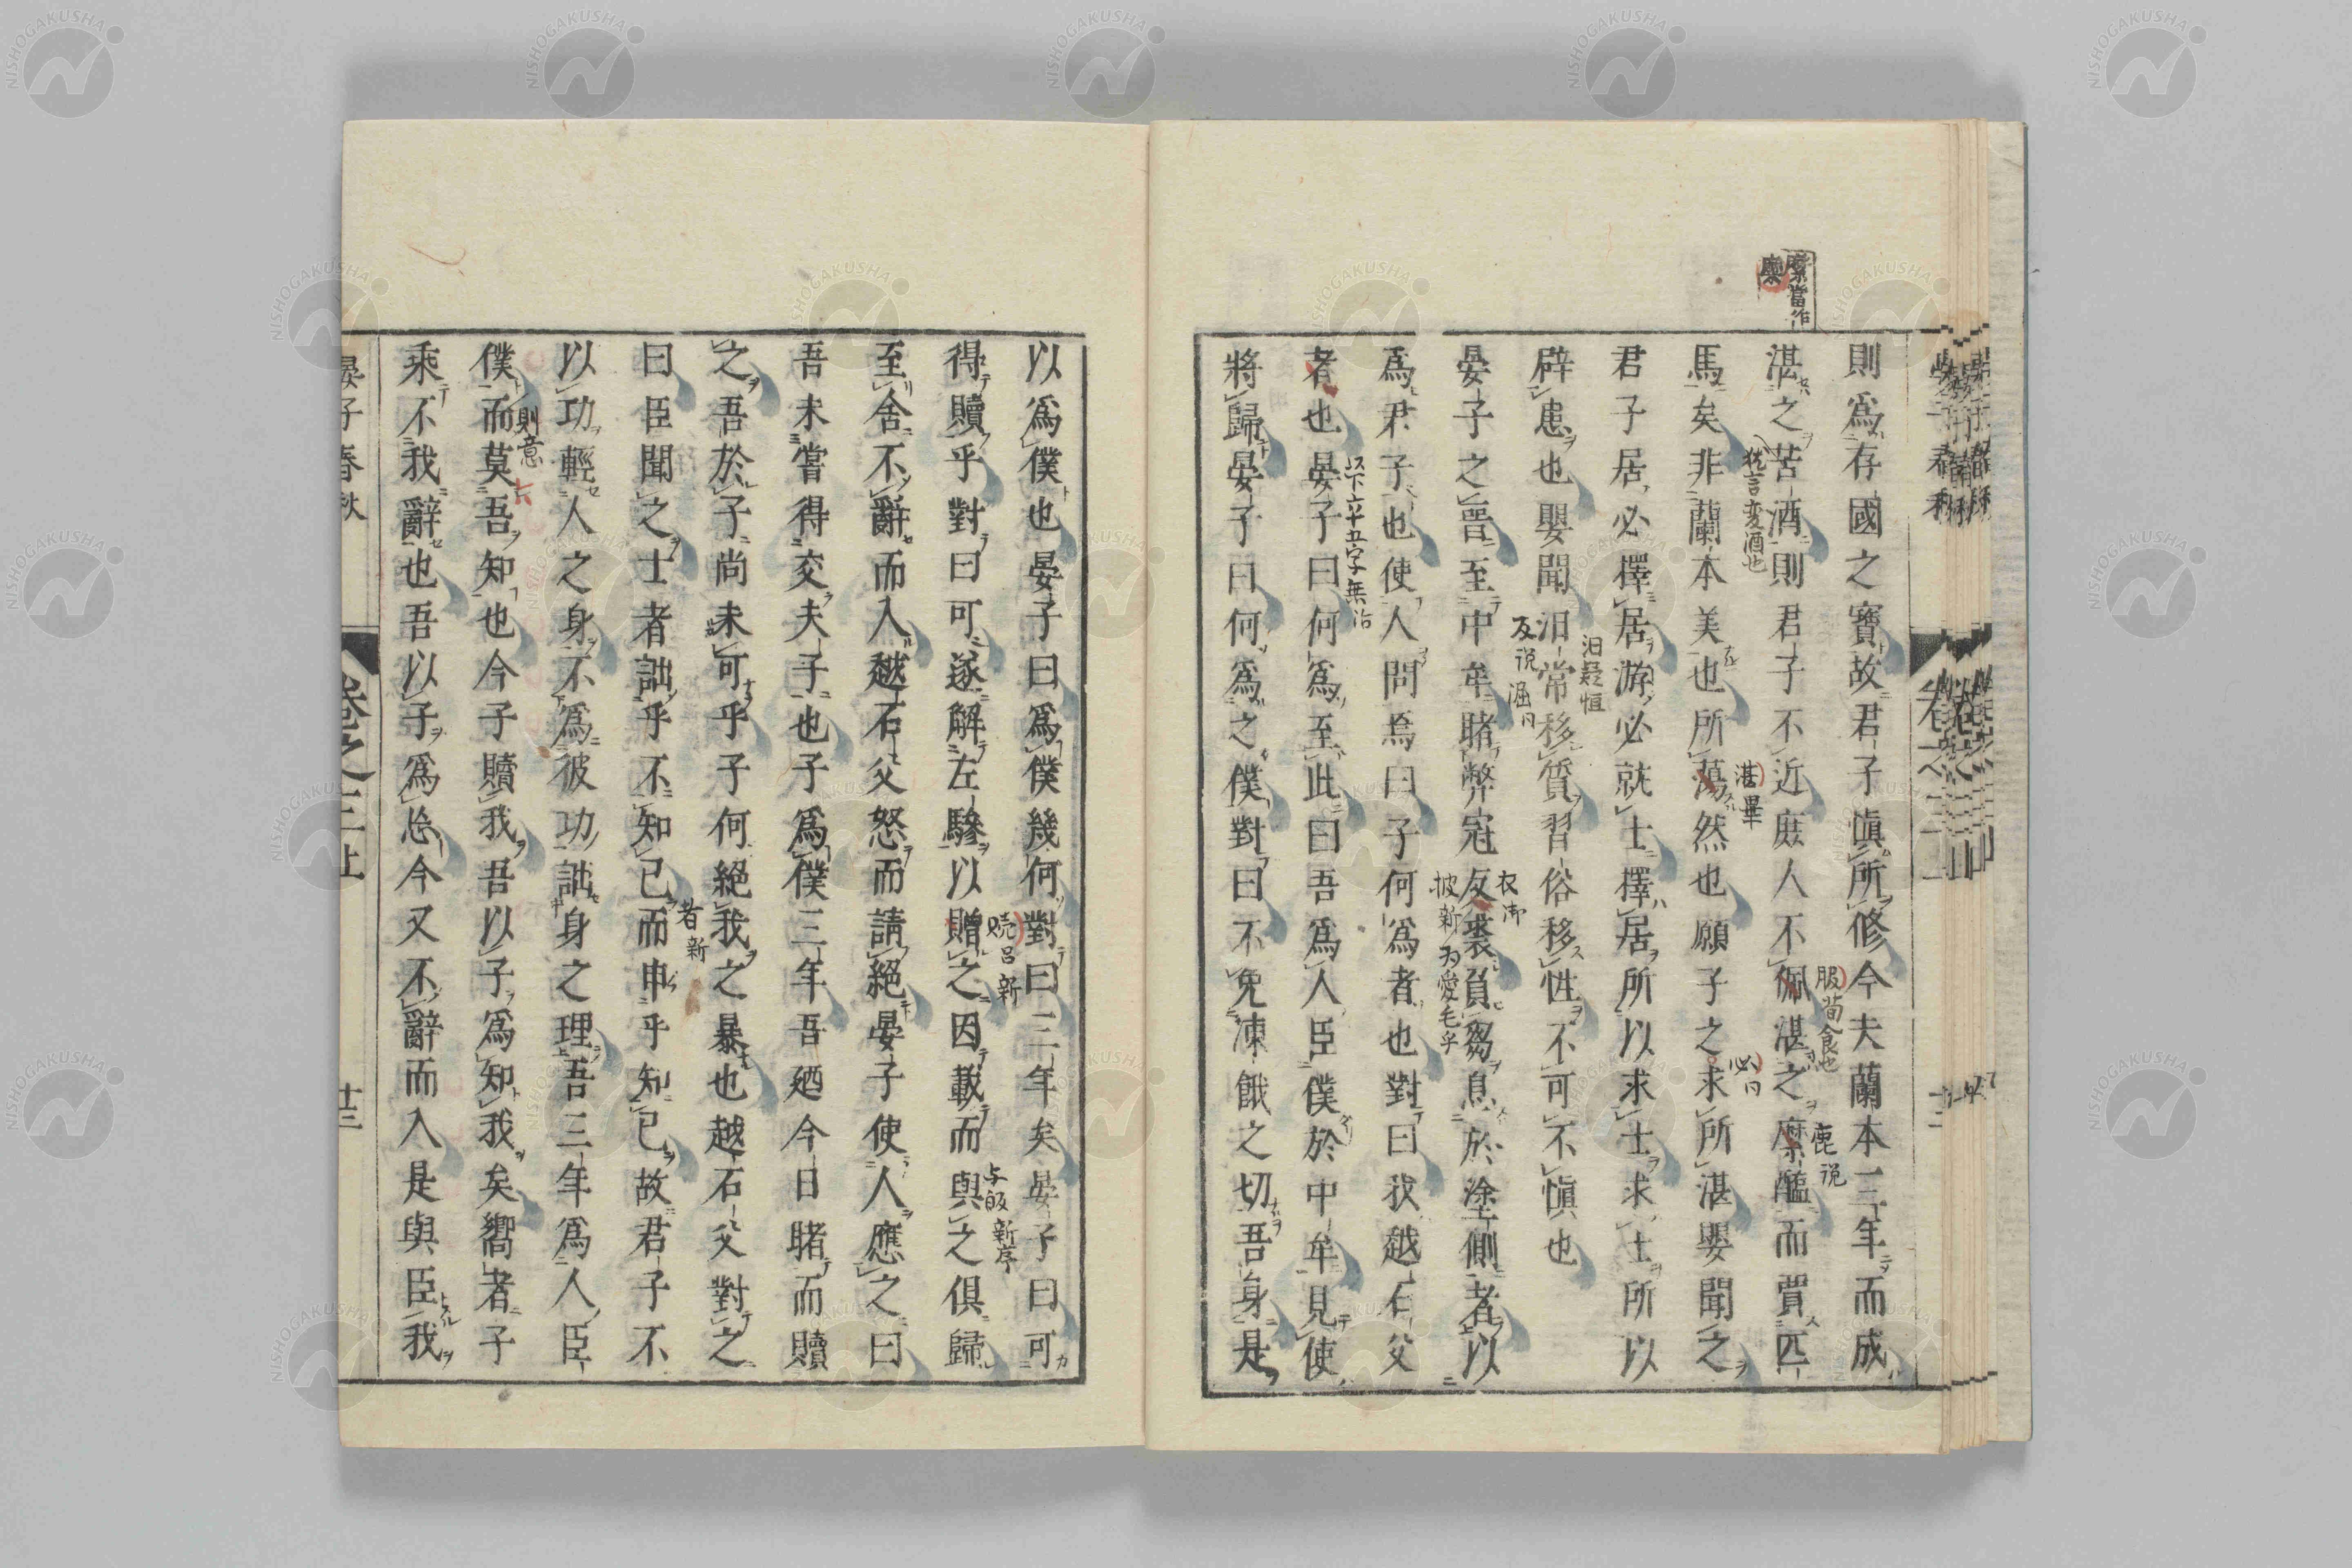 糜當作
麋
則爲存國之寶故君子愼所修今夫蘭本三年而成
湛之苦酒則君子不近庶人不佩湛之糜醢而賈匹
馬矣非蘭本美也所蕩然也願子之求所湛嬰聞之
君子居必擇居游必就士擇居所以求士求士所以
辟患也嬰聞汨常移質習俗移性不可不愼也
晏子之晋至中牟睹弊冠反裘負芻息於塗側者以
爲君子也使人問焉曰子何爲者也對曰我越石父
者也晏子曰何爲至此曰吾爲人臣僕於中牟見使
將歸晏子曰何爲之僕對曰不免凍餓之切吾身是
服荀食也
鹿説
猶言変酒也
湛畢
必同
汨疑恒
反説
衣御
披新
以下六十五字無治
以爲僕也晏子曰爲僕幾何對曰三年矣晏子曰可
得贖乎對曰可遂解左驂以贈之因載而與之俱歸
至舍不辭而入越石父怒而請絕晏子使人應之曰
吾未嘗得交夫子也子爲僕三年吾廼今日睹而贖
之吾於子尚未可乎子何絕我之暴也越石父對之
曰臣聞之士者詘乎不知己而申乎知己故君子不
以功輕人之身不爲彼功詘身之理吾三年爲人臣
僕而莫吾知也今子贖我吾以子爲知我矣嚮者子
乘不我辭也吾以子爲忩今又不辭而入是與臣我
呂新
新序
者新
則意
晏子春秋
卷之三上
廿三
NISHOGAKUSHA